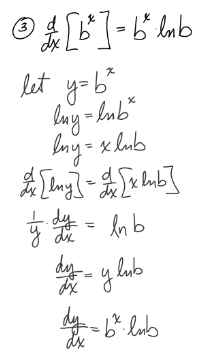 ③ d/dx [b^x] = b^x · ln b
let y = b^x
ln y = ln b^x
ln y = x ln b
d/dx [ln y] = d/dx [x ln b]
1/y · dy/dx = ln b
dy/dx = y ln b
dy/dx = b^x · ln b